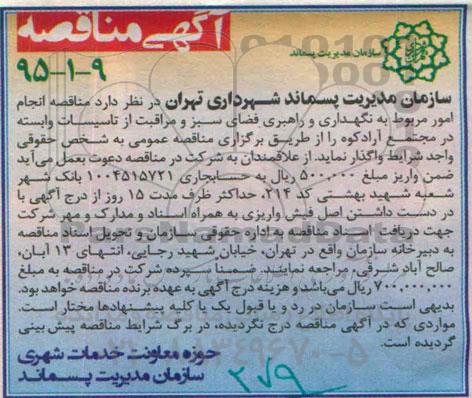 آگهی مناقصه
سازمان مدیریت پسماند
۹۵-۱-۹
سازمان مدیریت پسماند شهرداری تهران در نظر دارد مناقصه انجام
امور مربوط به نگهداری و راهبری فضای سبز و مراقبت از تاسیسات وابسته
در مجتمع آرادکوه را از طریق برگزاری مناقصه عمومی به شخص حقوقی
واجد شرایط واگذار نماید. از علاقمندان به شرکت در مناقصه دعوت بعمل می‌آید
ضمن واریز مبلغ ۵۰۰,۰۰۰ ریال به حسابجاری ۱۰۰۴۵۱۵۷۲۱ بانک شهر
شعبه شهید بهشتی کد ۲۱۴، حداکثر ظرف مدت ۱۵ روز از درج آگهی با
در دست داشتن اصل فیش واریزی به همراه اسناد و مدارک و مهر شرکت
جهت دریافت اسناد مناقصه به اداره حقوقی سازمان و تحویل اسناد مناقصه
به دبیرخانه سازمان واقع در تهران، خیابان شهید رجایی، انتهای ۱۳ آبان،
صالح آباد شرقی، مراجعه نمایند. ضمنا سپرده شرکت در مناقصه به مبلغ
۷۰۰,۰۰۰,۰۰۰ ریال می‌باشد و هزینه درج آگهی به عهده برنده مناقصه خواهد بود.
بدیهی است سازمان در رد و یا قبول یک یا کلیه پیشنهادها مختار است.
مواردی که در آگهی مناقصه درج نگردیده، در برگ شرایط مناقصه پیش بینی
گردیده است.
حوزه معاونت خدمات شهری
سازمان مدیریت پسماند
۲۷۹